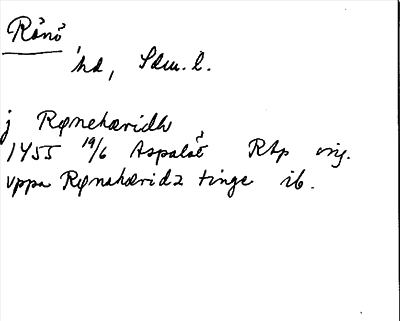 Rånö
hd, Söm. l.
j Rønehæridh
1455 19/6 Aspalöt RAp orig.
vppa Rønahæridz tinge ib.